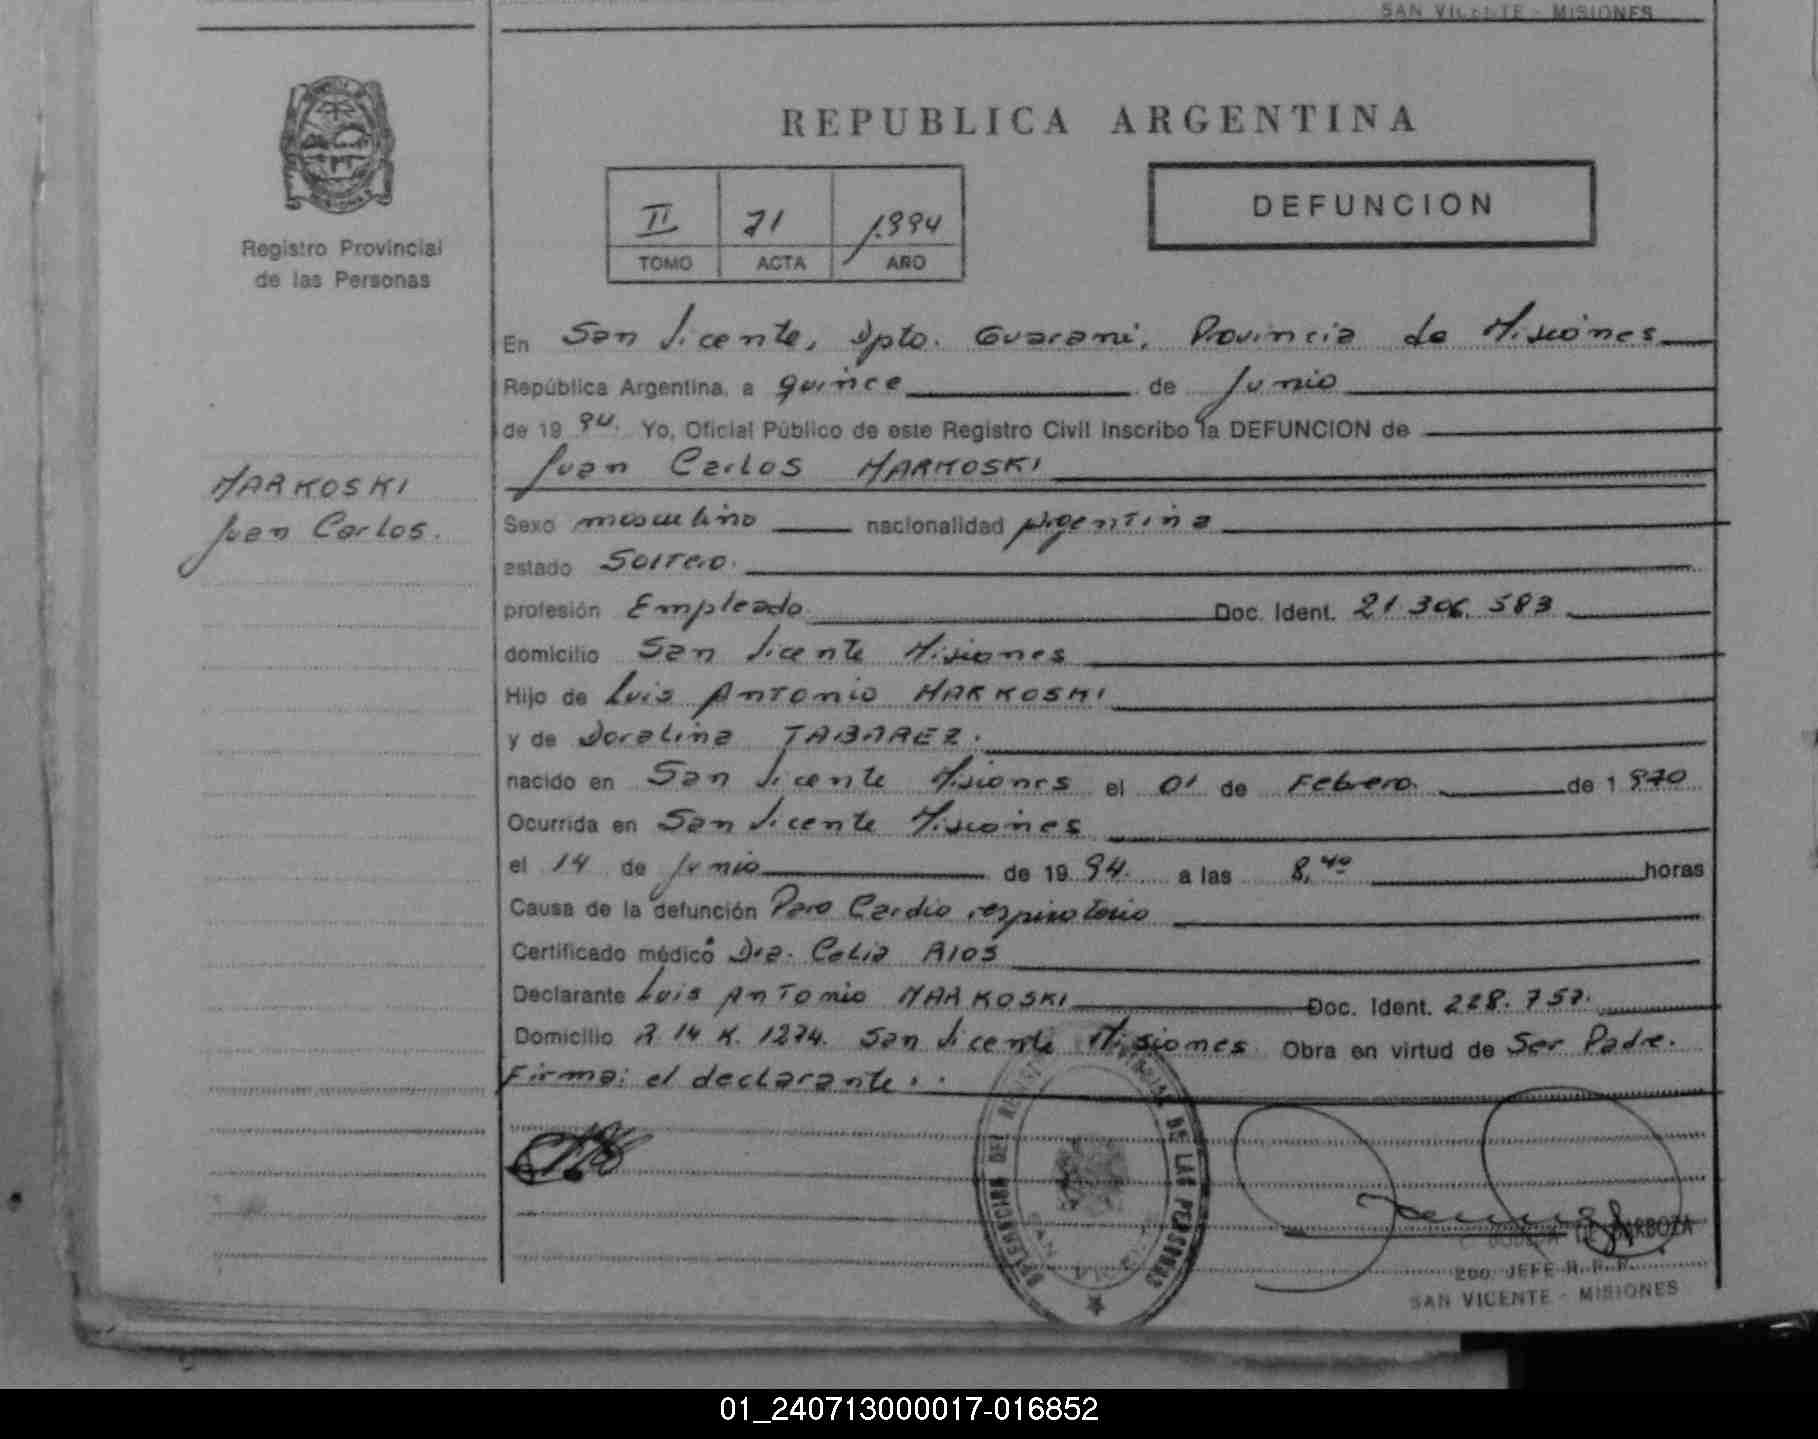 SAN VICENTE - MISIONES
REPUBLICA ARGENTINA
II 71 1.994
TOMO ACTA AÑO
DEFUNCION
Registro Provincial
de las Personas
MARKOSKI
Juan Carlos.
En San Vicente, Dpto. Guarani, Provincia de Misiones
República Argentina, a quince de Junio
de 19 94. Yo, Oficial Público de este Registro Civil inscribo la DEFUNCION de
Juan Carlos MARKOSKI
Sexo masculino nacionalidad Argentina
estado Soltero.
profesión Empleado. Doc. Ident. 21.306.583
domicilio San Vicente Misiones
Hijo de Luis Antonio MARKOSKI
y de Doralina TABAREZ.
nacido en San Vicente Misiones el 01 de Febrero. de 1 970
Ocurrida en San Vicente Misiones
el 14 de Junio de 19 94. a las 8,40 horas
Causa de la defunción Paro Cardio respiratorio
Certificado médico Dra. Celia RIOS
Declarante Luis Antonio MARKOSKI Doc. Ident. 228.757.
Domicilio R. 14 K. 1274. San Vicente Misiones Obra en virtud de Ser Padre.
Firma: el declarante.
DELEGACION DEL DE LAS PERSONAS
SAN
DE BARBOZA
2do. JEFE R.P.P.
SAN VICENTE - MISIONES
01_240713000017-016852